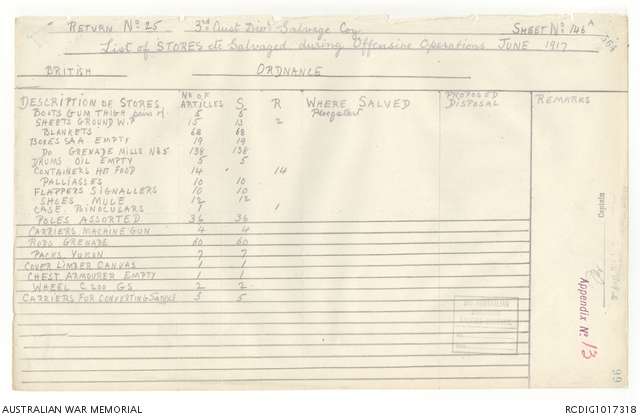 RETURN No 25 3rd Aust Divnl Salvage Coy SHEET No 146A
List of STORES etc Salvaged during Offensive Operations JUNE 1917
BRITISH ORDNANCE
DESCRIPTION OF STORES No OF ARTICLES S R WHERE SALVED PROPOSED DISPOSAL REMARKS
BOOTS GUM THIGH pairs of 5 5 Ploegsteert
SHEETS GROUND W.P 15 13 2
BLANKETS 68 68
BOXES SAA EMPTY 19 19
Do GRENADE MILLS No 5 138 138
DRUMS OIL EMPTY 5 5
CONTAINERS HOT FOOD 14 14
PALLIASSES 10 10
FLAPPERS SIGNALLERS 10 10
SHOES MULE 12 12
CASE BINOCULARS 1 1
POLES ASSORTED 36 36
CARRIERS MACHINE GUN 4 4
RODS GRENADE 60 60
PACKS YUKON 7 7
COVER LIMBER CANVAS 1 1
CHEST ARMOURER EMPTY 1 1
WHEEL C 200 GS 2 2
CARRIERS FOR CONVERTING 5 5
Captain
Appendix No 13
99
AUSTRALIAN WAR MEMORIAL RCDIG1017318